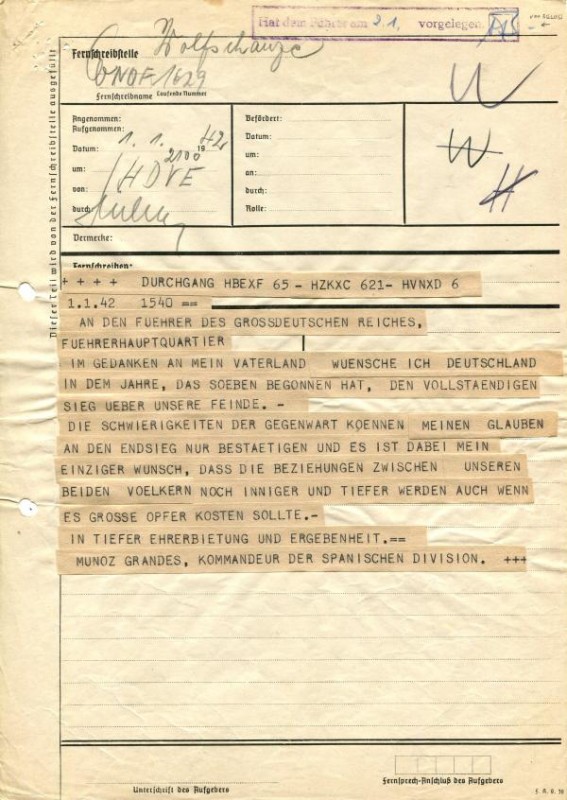 Hat dem Führer am 2.1. vorgelegen
Fernschreibstelle Wolfschanze
GNOF 1629
Fernschreibname Laufende Nummer
Angenommen:
Aufgenommen:
Datum: 1. 1. 1942
um: 2100
von: HDVE
durch:
Befördert:
Datum:
um:
an:
durch:
Rolle:
Vermerke:
Fernschreiben:
Dieser Teil wird von der Fernschreibstelle ausgefüllt
+ + + + DURCHGANG HBEXF 65 - HZKXC 621- HVNXD 6
1.1.42 1540 ==
AN DEN FUEHRER DES GROSSDEUTSCHEN REICHES,
FUEHRERHAUPTQUARTIER
IM GEDANKEN AN MEIN VATERLAND WUENSCHE ICH DEUTSCHLAND
IN DEM JAHRE, DAS SOEBEN BEGONNEN HAT, DEN VOLLSTAENDIGEN
SIEG UEBER UNSERE FEINDE. -
DIE SCHWIERIGKEITEN DER GEGENWART KOENNEN MEINEN GLAUBEN
AN DEN ENDSIEG NUR BESTAETIGEN UND ES IST DABEI MEIN
EINZIGER WUNSCH, DASS DIE BEZIEHUNGEN ZWISCHEN UNSEREN
BEIDEN VOELKERN NOCH INNIGER UND TIEFER WERDEN AUCH WENN
ES GROSSE OPFER KOSTEN SOLLTE.-
IN TIEFER EHRERBIETUNG UND ERGEBENHEIT.==
MUNOZ GRANDES, KOMMANDEUR DER SPANISCHEN DIVISION. +++
Unterschrift des Aufgebers
Fernsprech-Anschluß des Aufgebers